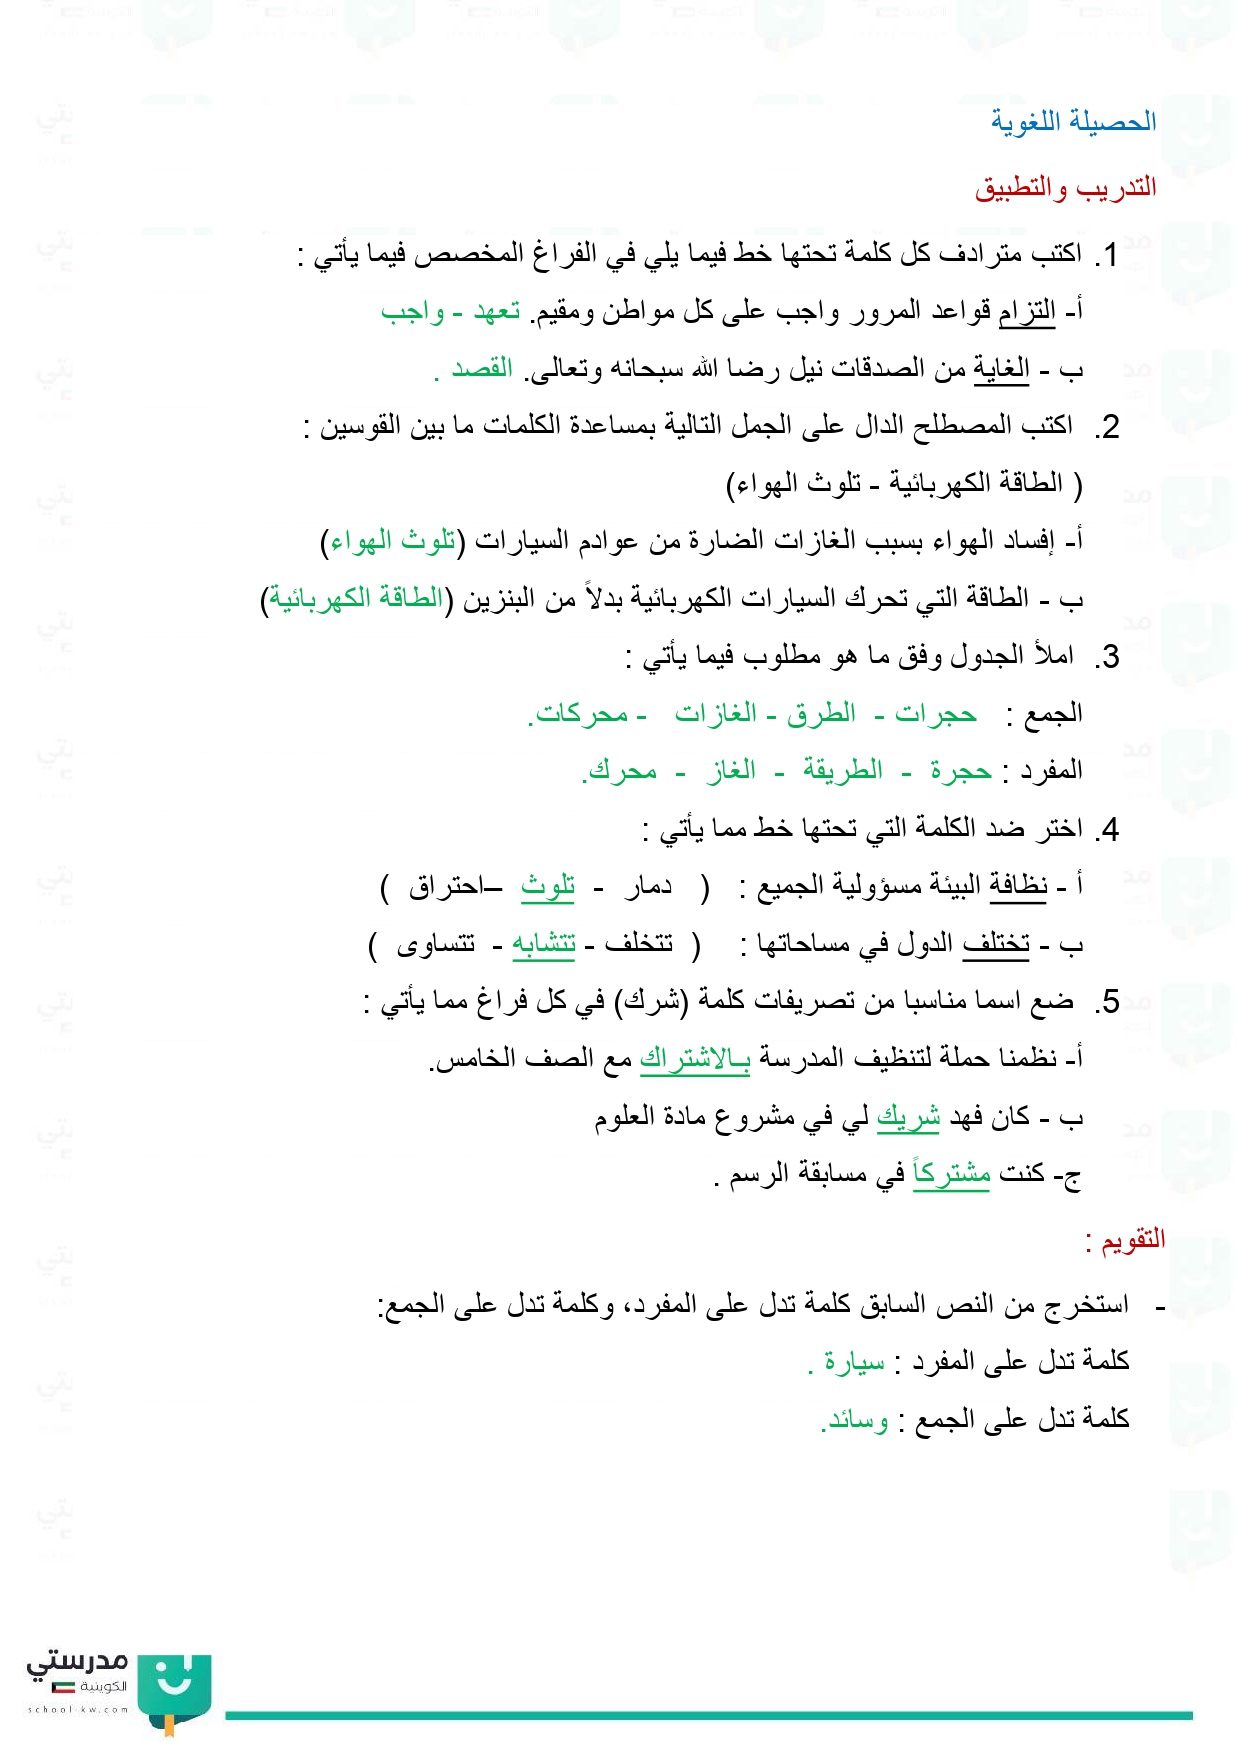 الحصيلة اللغوية
التدريب والتطبيق
1. اكتب مترادف كل كلمة تحتها خط فيما يلي في الفراغ المخصص فيما يأتي :
أ- التزام قواعد المرور واجب على كل مواطن ومقيم. تعهد - واجب
ب - الغاية من الصدقات نيل رضا الله سبحانه وتعالى. القصد .
2. اكتب المصطلح الدال على الجمل التالية بمساعدة الكلمات ما بين القوسين :
( الطاقة الكهربائية - تلوث الهواء)
أ- إفساد الهواء بسبب الغازات الضارة من عوادم السيارات (تلوث الهواء)
ب - الطاقة التي تحرك السيارات الكهربائية بدلاً من البنزين (الطاقة الكهربائية)
3. املأ الجدول وفق ما هو مطلوب فيما يأتي :
الجمع : حجرات - الطرق - الغازات - محركات.
المفرد : حجرة - الطريقة - الغاز - محرك.
4. اختر ضد الكلمة التي تحتها خط مما يأتي :
أ - نظافة البيئة مسؤولية الجميع : ( دمار - تلوث –احتراق )
ب - تختلف الدول في مساحاتها : ( تتخلف - تتشابه - تتساوى )
5. ضع اسما مناسبا من تصريفات كلمة (شرك) في كل فراغ مما يأتي :
أ- نظمنا حملة لتنظيف المدرسة بـالاشتراك مع الصف الخامس.
ب - كان فهد شريك لي في مشروع مادة العلوم
ج- كنت مشتركاً في مسابقة الرسم .
التقويم :
- استخرج من النص السابق كلمة تدل على المفرد، وكلمة تدل على الجمع:
كلمة تدل على المفرد : سيارة .
كلمة تدل على الجمع : وسائد.
مدرستي
الكويتية
school-kw.com